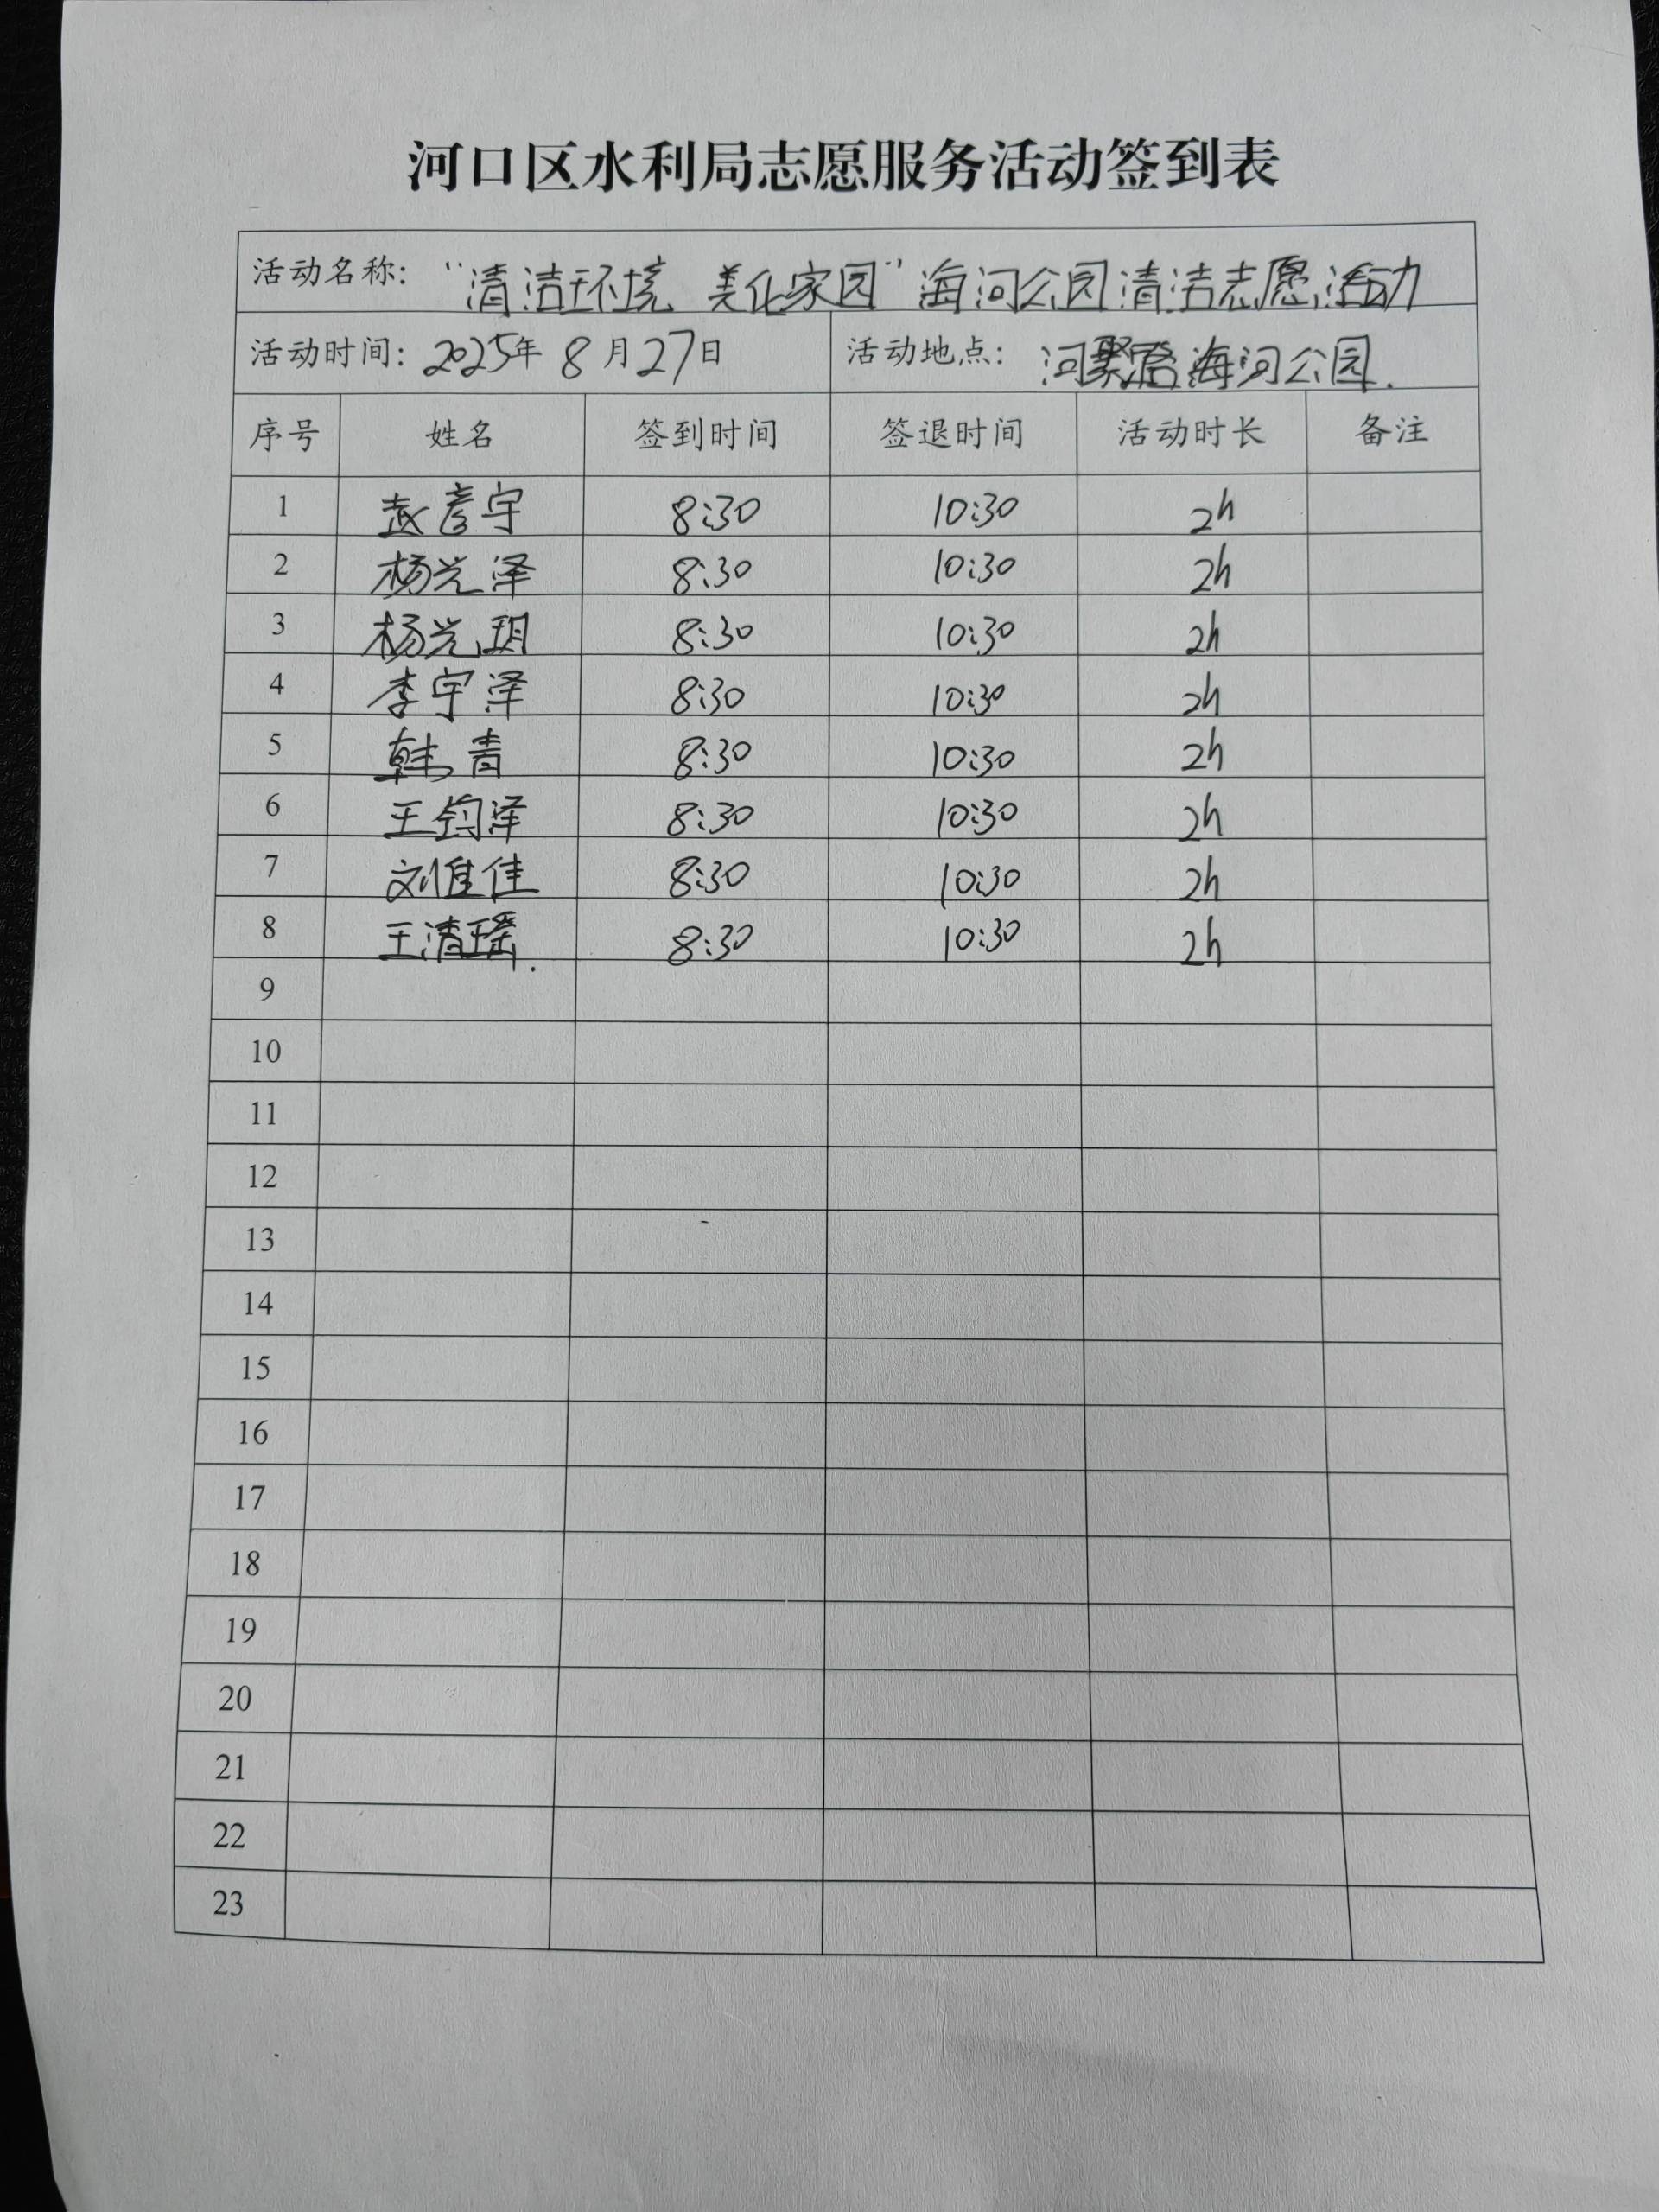 河口区水利局志愿服务活动签到表
活动名称: “清洁环境 美化家园” 海河公园清洁志愿活动
活动时间: 2025年 8月27日 活动地点: 海河公园.
序号 姓名 签到时间 签退时间 活动时长 备注
1 赵彦宇 8:30 10:30 2h
2 杨光泽 8:30 10:30 2h
3 杨光玥 8:30 10:30 2h
4 李宇泽 8:30 10:30 2h
5 韩青 8:30 10:30 2h
6 王钧泽 8:30 10:30 2h
7 刘惟佳 8:30 10:30 2h
8 王清瑶. 8:30 10:30 2h
9
10
11
12
13
14
15
16
17
18
19
20
21
22
23